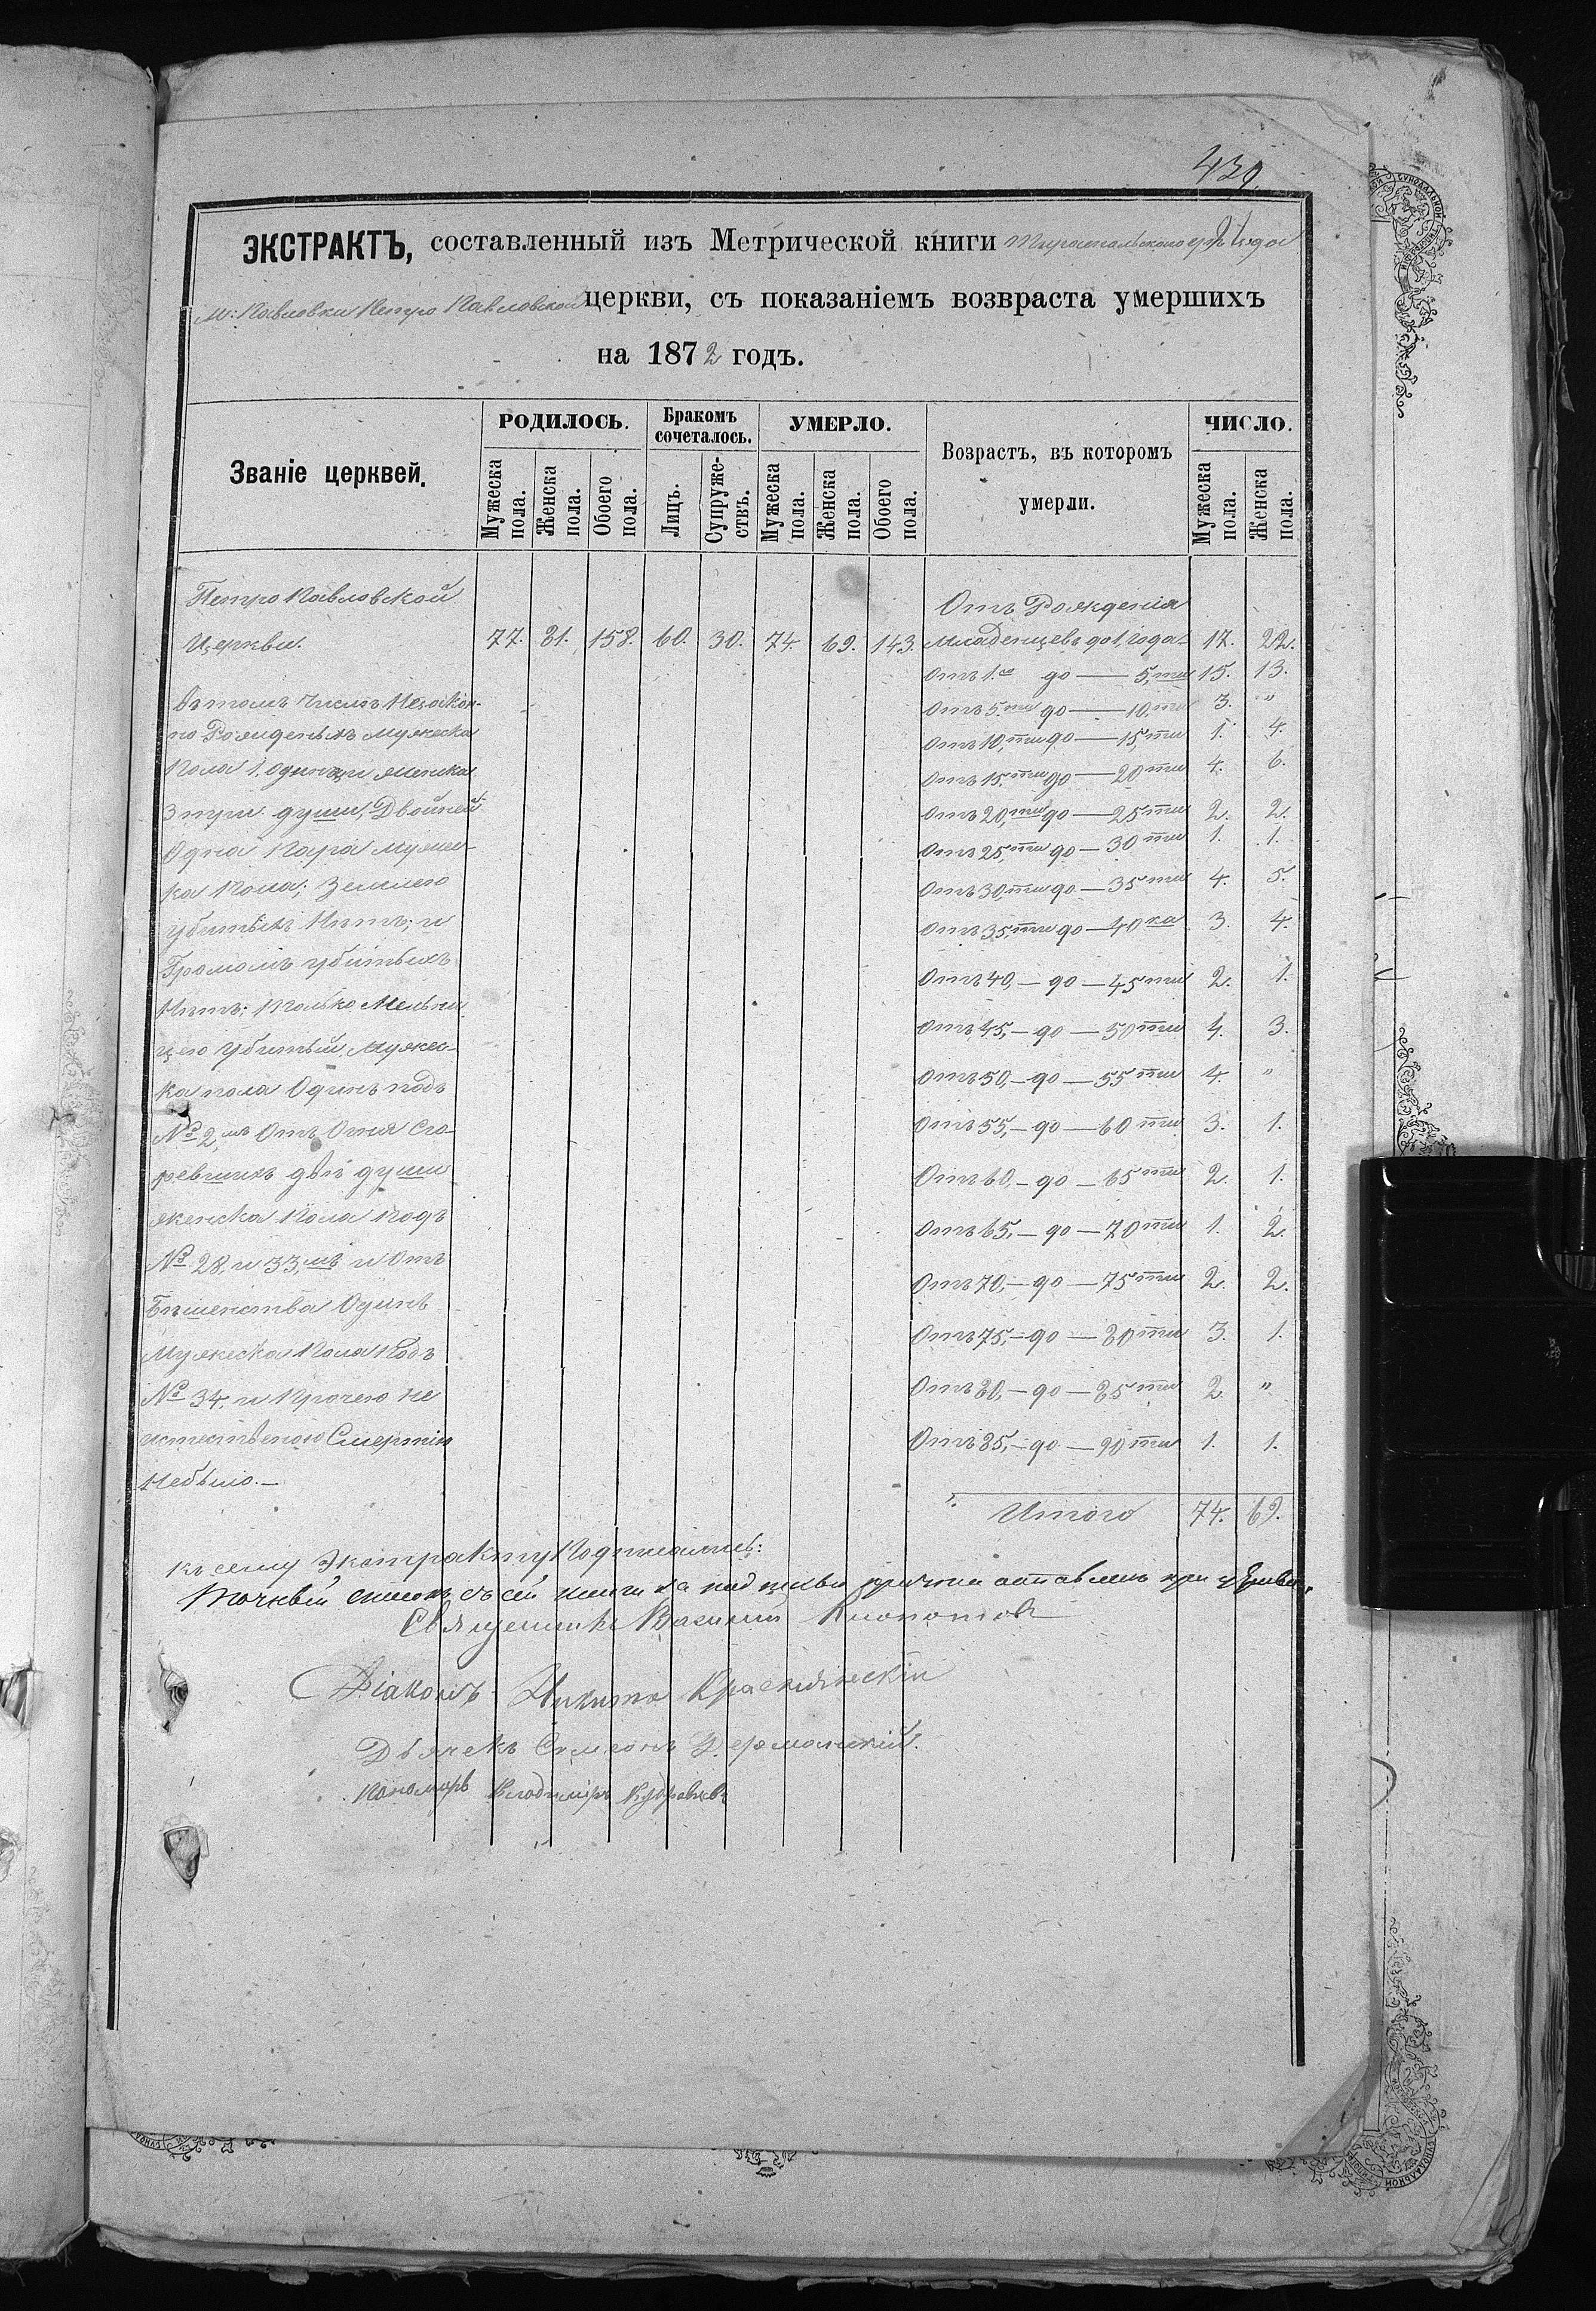 439.
ЭКСТРАКТЪ, составленный изъ Метрической книги Тираспольского уѣзда
м: Павловки Петро Павловской церкви, съ показаніемъ возвраста умершихъ
на 1872 годъ.
Званіе церквей.
РОДИЛОСЬ.
Бракомъ сочеталось.
УМЕРЛО.
Возрастъ, въ которомъ умерли.
ЧИСЛО.
Мужеска пола. Женска пола. Обоего пола. Лицъ. Супружествъ. Мужеска пола. Женска пола. Обоего пола. Мужеска пола. Женска пола.
Петро Павловской
Отъ Рожденія
Церкви. 77. 81. 158. 60. 30. 74. 69. 143. младенцевъ до 1, года 17. 22.
Отъ 1.го до — 5,ти 15. 13.
Отъ 5.ти до — 10,ти 3. "
Отъ 10,ти до — 15,ти 1. 4.
Отъ 15,ти до — 20ти 4. 6.
Отъ 20,ти до — 25ти 2. 2.
Отъ 25,ти до — 30ти 1. 1.
Отъ 30,ти до — 35ти 4. 5.
Отъ 35,ти до — 40ка 3. 4.
Отъ 40, — до — 45ти 2. 1.
Отъ 45, — до — 50ти 4. 3.
Отъ 50, — до — 55ти 4. "
Отъ 55, — до — 60ти 3. 1.
Отъ 60, — до — 65ти 2. 1.
Отъ 65, — до — 70ти 1. 2.
Отъ 70, — до — 75ти 2. 2.
Отъ 75, — до — 80ти 3. 1.
Отъ 80, — до — 85ти 2 "
Отъ 85, — до — 90ти 1. 1.
Итого 74. 69.
Въ томъ числѣ Незакон-
но Рожденыхъ Мужеска
Пола 1, одинъ, и женска
3 три души, Двойней
Одна Пара Мужес-
ка Пола; Землею
убитыхъ Нѣтъ; и
Громомъ убитыхъ
Нѣтъ; Только Мельни-
цею убитый Мужес-
ка пола Одинъ подъ
№ 2,мъ Отъ Огня Сго-
ревшихъ двѣ души
женска Пола Подъ
№ 28, и 33,мъ и Отъ
Бѣшенства Одинъ
Мужеска Пола Подъ
№ 34, и Прочею не
естественою Смертію
Небыло. —
Къ сему Экстракту Подписались:
Точный списокъ съ сей книги за подписью причта оставленъ при церкви.
Священникъ Василий
Діаконъ Никита Краснянскій
Дьячекъ Симеонъ
Пономарь Владиміръ Кудрявцевъ